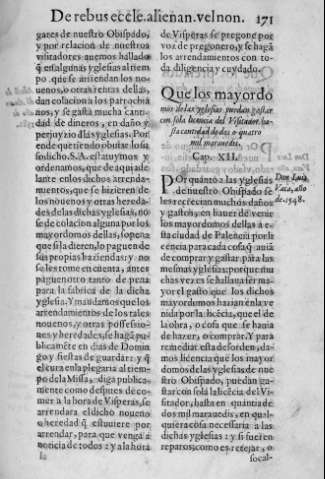 De rebus eccle. alienan. vel non. 171
gares de nuestro Obispado,
y por relacion de nuestros
visitadores auemos hallado
q̃ en algunas yglesias al tiem-
po que se arriendan los no-
uenos, o otras rentas dellas,
dan colacion a los parrochia
nos, y se gasta mucha canti-
dad de dineros, en daño y
perjuyzio dlas yglesias. Por
ende queriendo obuiar lo sa
sodicho. S.A. estatuymos y
ordenamos, que de aqui ade
lante en los dichos arrenda-
mientos, que se hizieren de
los nouenos y otras hereda-
des de las dichas yglesias, no
se de colacion alguna por los
mayordomos dellas, so pena
que si la dieren, lo paguen de
sus propias haziendas: y no
se les tome en cuenta, antes
paguen otro tanto de pena
para la fabrica de la dicha
yglesia. Y mandamos que los
arrendamientos de los tales
nouenos, y otras possessio-
nes y heredades, se hagã pu-
blicamẽte en dias de Domin
go y fiestas de guardar: y q̃
el cura en la plegaria al tiem-
po de la Missa, diga publica-
mente como despues de co-
mer a la hora de Visperas, se
arrendara el dicho noueno
o heredad q̃ estuuiere por
arrendar, para que venga a
noticia de todos: y a la hora
de Visperas se pregone por
voz de pregonero, y se hagã
los arrendamientos con toda
diligencia y cuydado.
Que los mayordo
mos de las yglesias puedan gastar
con sola licencia del Visitador, ha-
sta cantidad de dos o quatro
mil marauedis.
Cap. XII.
POr quanto a las yglesias
de nuestro Obispado se
les recrecian muchos daños
y gastos, en hauer de venir
los mayordomos dellas a e-
sta ciudad de Palencia por li-
cencia para cada cosa q̃ auiã
de comprar y gastar para las
mesmas yglesias: porque mu
chas vezes se hallaua ser ma-
yor el gasto que los dichos
mayordomos hazian en la ve
nida por la licẽcia, que el de
la obra, o cosa que se hauia
de hazer, o comprar. Y para
remediar esta desorden, da-
mos licencia que los mayor
domos de las yglesias de nue
stro Obispado, puedan ga-
star con sola la licẽcia del Vi-
sitador, hasta en quantia de
dos mil marauedis, en qual-
quiera cosa necessaria a las
dichas yglesias: y si fueren
reparos, como es retejar, o
Don Luis
Vaca, año
de 1548.
socal-